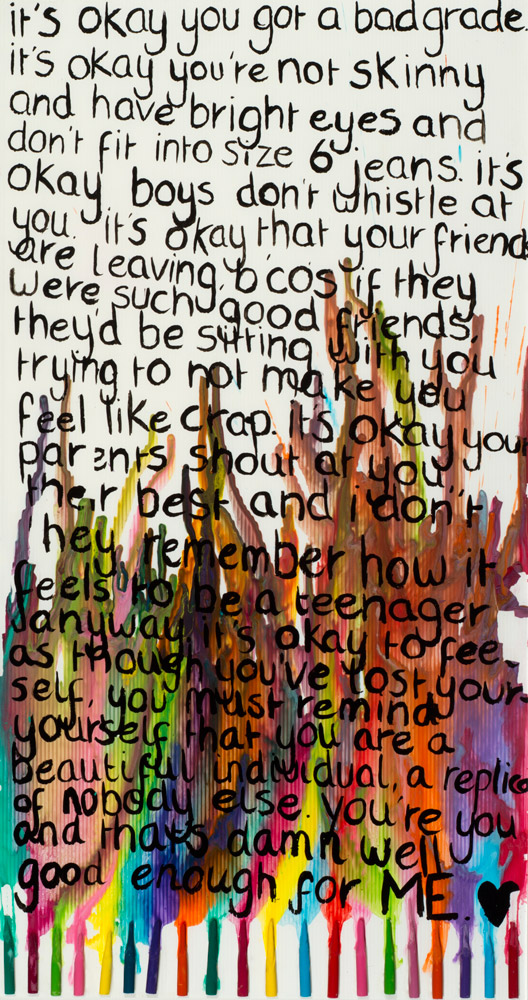 it's okay you got a bad grade.
it's okay you're not skinny
and have bright eyes and
don't fit into size 6 jeans. it's
okay boys don't whistle at
you. it's okay that your friends
are leaving, b'cos if they
were such good friends,
they'd be sitting with you
trying to not make you
feel like crap. it's okay your
parents shout at you
their best and i don't
they remember how it
feels to be a teenager
anyway it's okay to feel
as though you've lost your
self, you must remind
yourself that you are a
beautiful individual, a replica
of nobody else. you're you
and that's damn well
good enough for ME. ♥